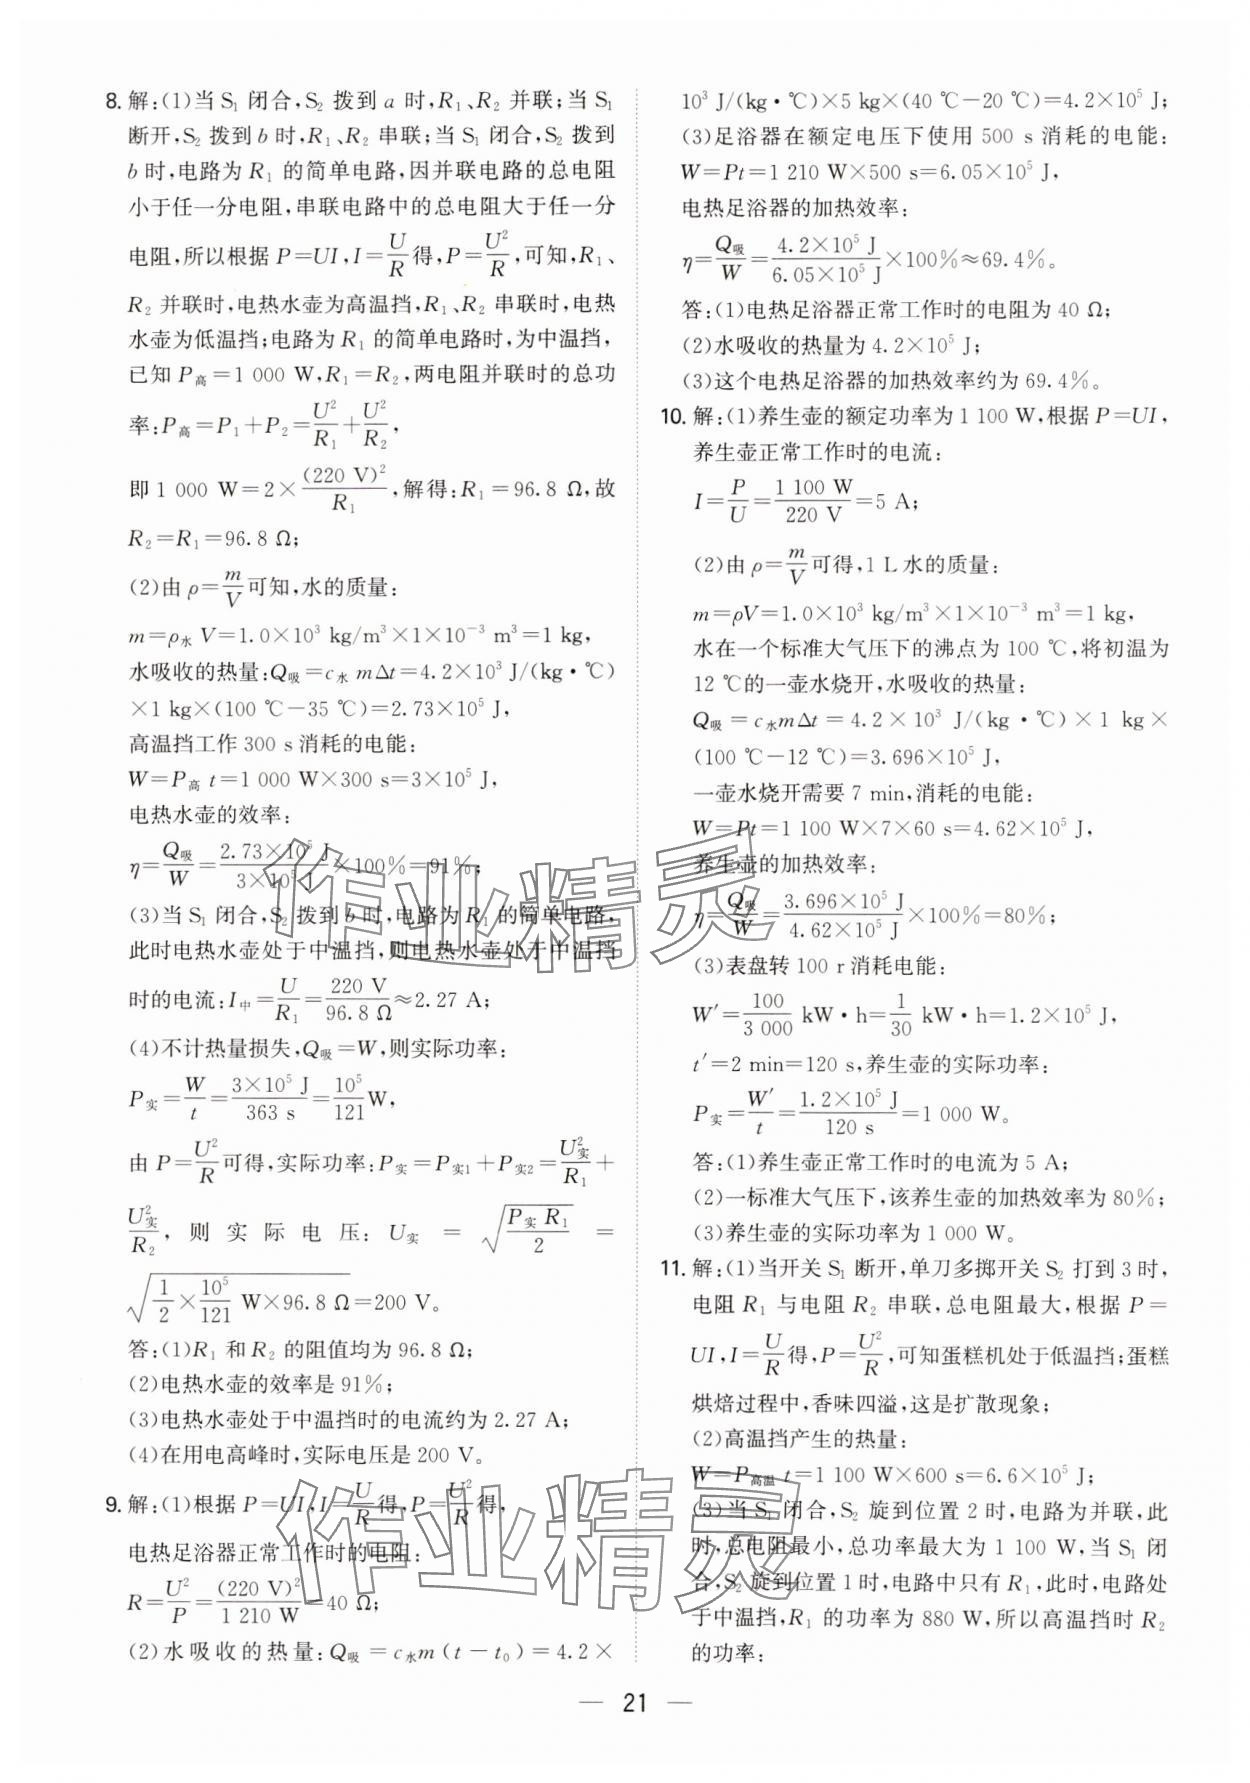 8. 解:(1)当 S₁ 闭合,S₂ 拨到 a 时,R₁、R₂ 并联;当 S₁
断开,S₂ 拨到 b 时,R₁、R₂ 串联;当 S₁ 闭合,S₂ 拨到
b 时,电路为 R₁ 的简单电路,因并联电路的总电阻
小于任一分电阻,串联电路中的总电阻大于任一分
电阻,所以根据 P=UI,I=U/R得,P=U²/R,可知,R₁、
R₂ 并联时,电热水壶为高温挡,R₁、R₂ 串联时,电热
水壶为低温挡;电路为 R₁ 的简单电路时,为中温挡,
已知 P高=1 000 W,R₁=R₂,两电阻并联时的总功
率:P高=P₁+P₂=U²/R₁+U²/R₂,
即 1 000 W=2×(220 V)²/R₁,解得:R₁=96.8 Ω,故
R₂=R₁=96.8 Ω;
(2)由 ρ=m/V可知,水的质量:
m=ρ水 V=1.0×10³ kg/m³×1×10⁻³ m³=1 kg,
水吸收的热量:Q吸=c水 mΔt=4.2×10³ J/(kg·℃)
×1 kg×(100 ℃-35 ℃)=2.73×10⁵ J,
高温挡工作 300 s 消耗的电能:
W=P高 t=1 000 W×300 s=3×10⁵ J,
电热水壶的效率:
η=Q吸/W=2.73×10⁵ J/3×10⁵ J×100%=91%;
(3)当 S₁ 闭合,S₂ 拨到 b 时,电路为 R₁ 的简单电路,
此时电热水壶处于中温挡,则电热水壶处于中温挡
时的电流:I中=U/R₁=220 V/96.8 Ω≈2.27 A;
(4)不计热量损失,Q吸=W,则实际功率:
P实=W/t=3×10⁵ J/363 s=10⁵/121W,
由 P=U²/R可得,实际功率:P实=P实1+P实2=U²实/R₁+
U²实/R₂,则实际电压:U实=√(P实 R₁/2)=
√(1/2×10⁵/121 W×96.8 Ω)=200 V。
答:(1)R₁ 和 R₂ 的阻值均为 96.8 Ω;
(2)电热水壶的效率是 91%;
(3)电热水壶处于中温挡时的电流约为 2.27 A;
(4)在用电高峰时,实际电压是 200 V。
9. 解:(1)根据 P=UI,I=U/R得,P=U²/R得,
电热足浴器正常工作时的电阻:
R=U²/P=(220 V)²/1 210 W=40 Ω;
(2)水吸收的热量:Q吸=c水m(t-t₀)=4.2×
10³ J/(kg·℃)×5 kg×(40 ℃-20 ℃)=4.2×10⁵ J;
(3)足浴器在额定电压下使用 500 s 消耗的电能:
W=Pt=1 210 W×500 s=6.05×10⁵ J,
电热足浴器的加热效率:
η=Q吸/W=4.2×10⁵ J/6.05×10⁵ J×100%≈69.4%。
答:(1)电热足浴器正常工作时的电阻为 40 Ω;
(2)水吸收的热量为 4.2×10⁵ J;
(3)这个电热足浴器的加热效率约为 69.4%。
10. 解:(1)养生壶的额定功率为 1 100 W,根据 P=UI,
养生壶正常工作时的电流:
I=P/U=1 100 W/220 V=5 A;
(2)由 ρ=m/V可得,1 L 水的质量:
m=ρV=1.0×10³ kg/m³×1×10⁻³ m³=1 kg,
水在一个标准大气压下的沸点为 100 ℃,将初温为
12 ℃的一壶水烧开,水吸收的热量:
Q吸=c水mΔt=4.2×10³ J/(kg·℃)×1 kg×
(100 ℃-12 ℃)=3.696×10⁵ J,
一壶水烧开需要 7 min,消耗的电能:
W=Pt=1 100 W×7×60 s=4.62×10⁵ J,
养生壶的加热效率:
η=Q吸/W=3.696×10⁵ J/4.62×10⁵ J×100%=80%;
(3)表盘转 100 r 消耗电能:
W′=100/3 000 kW·h=1/30 kW·h=1.2×10⁵ J,
t′=2 min=120 s,养生壶的实际功率:
P实=W′/t=1.2×10⁵ J/120 s=1 000 W。
答:(1)养生壶正常工作时的电流为 5 A;
(2)一标准大气压下,该养生壶的加热效率为 80%;
(3)养生壶的实际功率为 1 000 W。
11. 解:(1)当开关 S₁ 断开,单刀多掷开关 S₂ 打到 3 时,
电阻 R₁ 与电阻 R₂ 串联,总电阻最大,根据 P=
UI,I=U/R得,P=U²/R,可知蛋糕机处于低温挡;蛋糕
烘焙过程中,香味四溢,这是扩散现象;
(2)高温挡产生的热量:
W=P高温 t=1 100 W×600 s=6.6×10⁵ J;
(3)当 S₁ 闭合,S₂ 旋到位置 2 时,电路为并联,此
时,总电阻最小,总功率最大为 1 100 W,当 S₁ 闭
合,S₂ 旋到位置 1 时,电路中只有 R₁,此时,电路处
于中温挡,R₁ 的功率为 880 W,所以高温挡时 R₂
的功率:
— 21 —
作业精灵
作业精灵